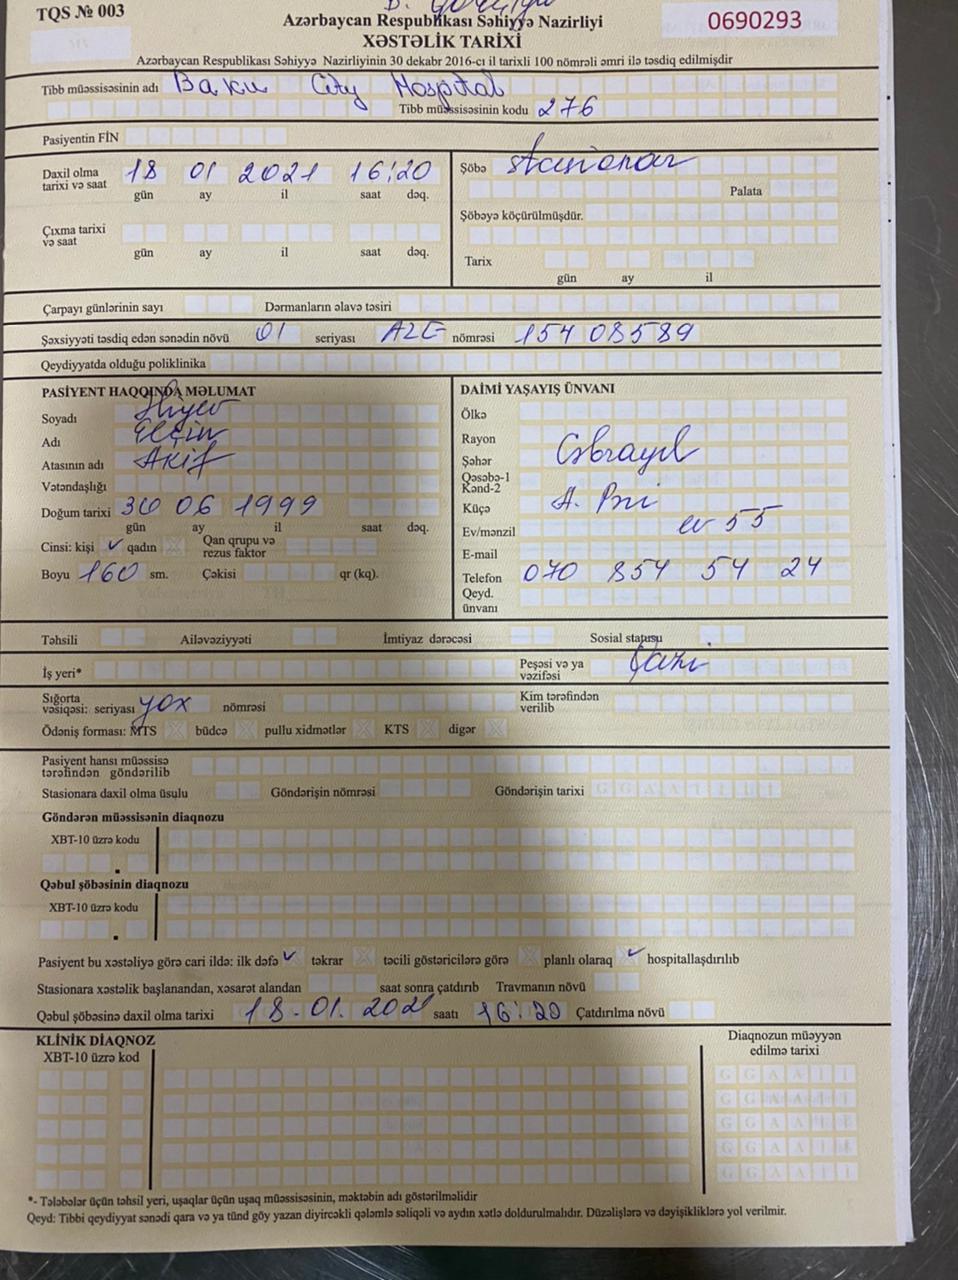 TQS № 003
Azərbaycan Respublikası Səhiyyə Nazirliyi
0690293
XƏSTƏLİK TARİXİ
Azərbaycan Respublikası Səhiyyə Nazirliyinin 30 dekabr 2016-cı il tarixli 100 nömrəli əmri ilə təsdiq edilmişdir
Tibb müəssisəsinin adı Baku City Hospital
Tibb müəssisəsinin kodu 276
Pasiyentin FİN
Daxil olma tarixi və saat 18 01 2021 16:20
gün ay il saat dəq.
Çıxma tarixi və saat
gün ay il saat dəq.
Şöbə stasionar
Palata
Şöbəyə köçürülmüşdür.
Tarix
gün ay il
Çarpayı günlərinin sayı Dərmanların əlavə təsiri
Şəxsiyyəti təsdiq edən sənədin növü 01 seriyası AZE nömrəsi 154 08589
Qeydiyyatda olduğu poliklinika
PASİYENT HAQQINDA MƏLUMAT
Soyadı Əliyev
Adı Elçin
Atasının adı Akif
Vətəndaşlığı
Doğum tarixi 30 06 1999
gün ay il saat dəq.
Cinsi: kişi ✓ qadın Qan qrupu və rezus faktor
Boyu 160 sm. Çəkisi qr (kq).
DAİMİ YAŞAYIŞ ÜNVANI
Ölkə
Rayon
Şəhər Cəbrayıl
Qəsəbə-1
Kənd-2
Küçə
Ev/mənzil ev 55
E-mail
Telefon 070 854 54 24
Qeyd. ünvanı
Təhsili Ailəvəziyyəti İmtiyaz dərəcəsi Sosial statusu
İş yeri* Peşəsi və ya vəzifəsi Qazi
Sığorta vəsiqəsi: seriyası yox nömrəsi Kim tərəfindən verilib
Ödəniş forması: MTS büdcə pullu xidmətlər KTS digər
Pasiyent hansı müəssisə tərəfindən göndərilib
Stasionara daxil olma üsulu Göndərişin nömrəsi Göndərişin tarixi G G A A İ İ İ İ
Göndərən müəssisənin diaqnozu
XBT-10 üzrə kodu
Qəbul şöbəsinin diaqnozu
XBT-10 üzrə kodu
Pasiyent bu xəstəliyə görə cari ildə: ilk dəfə ✓ təkrar təcili göstəricilərə görə planlı olaraq ✓ hospitallaşdırılıb
Stasionara xəstəlik başlanandan, xəsarət alandan saat sonra çatdırıb Travmanın növü
Qəbul şöbəsinə daxil olma tarixi 18.01.2021 saatı 16:20 Çatdırılma növü
KLİNİK DİAQNOZ
XBT-10 üzrə kod
Diaqnozun müəyyən edilmə tarixi
G G A A İ İ
G G A A İ İ
G G A A İ İ
G G A A İ İ
G G A A İ İ
*- Tələbələr üçün təhsil yeri, uşaqlar üçün uşaq müəssisəsinin, məktəbin adı göstərilməlidir
Qeyd: Tibbi qeydiyyat sənədi qara və ya tünd göy yazan diyircəkli qələmlə səliqəli və aydın xətlə doldurulmalıdır. Düzəlişlərə və dəyişikliklərə yol verilmir.